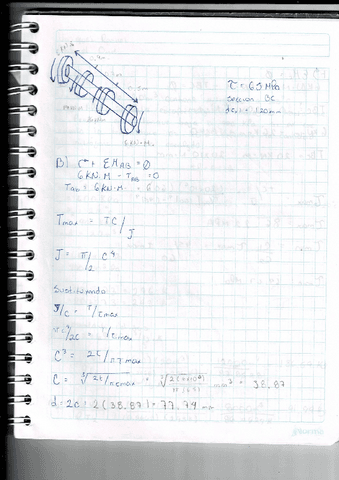 τ = 65 MPa
seccion BC
dext = 120mm
6 KN·M.
B) ΣMAB = 0
6KN·M - TAB = 0
TAB = 6KN·M
Tmax = TC/J
J = π/2 C⁴
Sustituyendo
J/C = T/τmax
πC⁴/2C = T/τmax
C³ = 2T/πτmax
C = ∛2T/πτmax = mm³ = 38.87
d = 2C = 2(38.87) = 77.79 mm